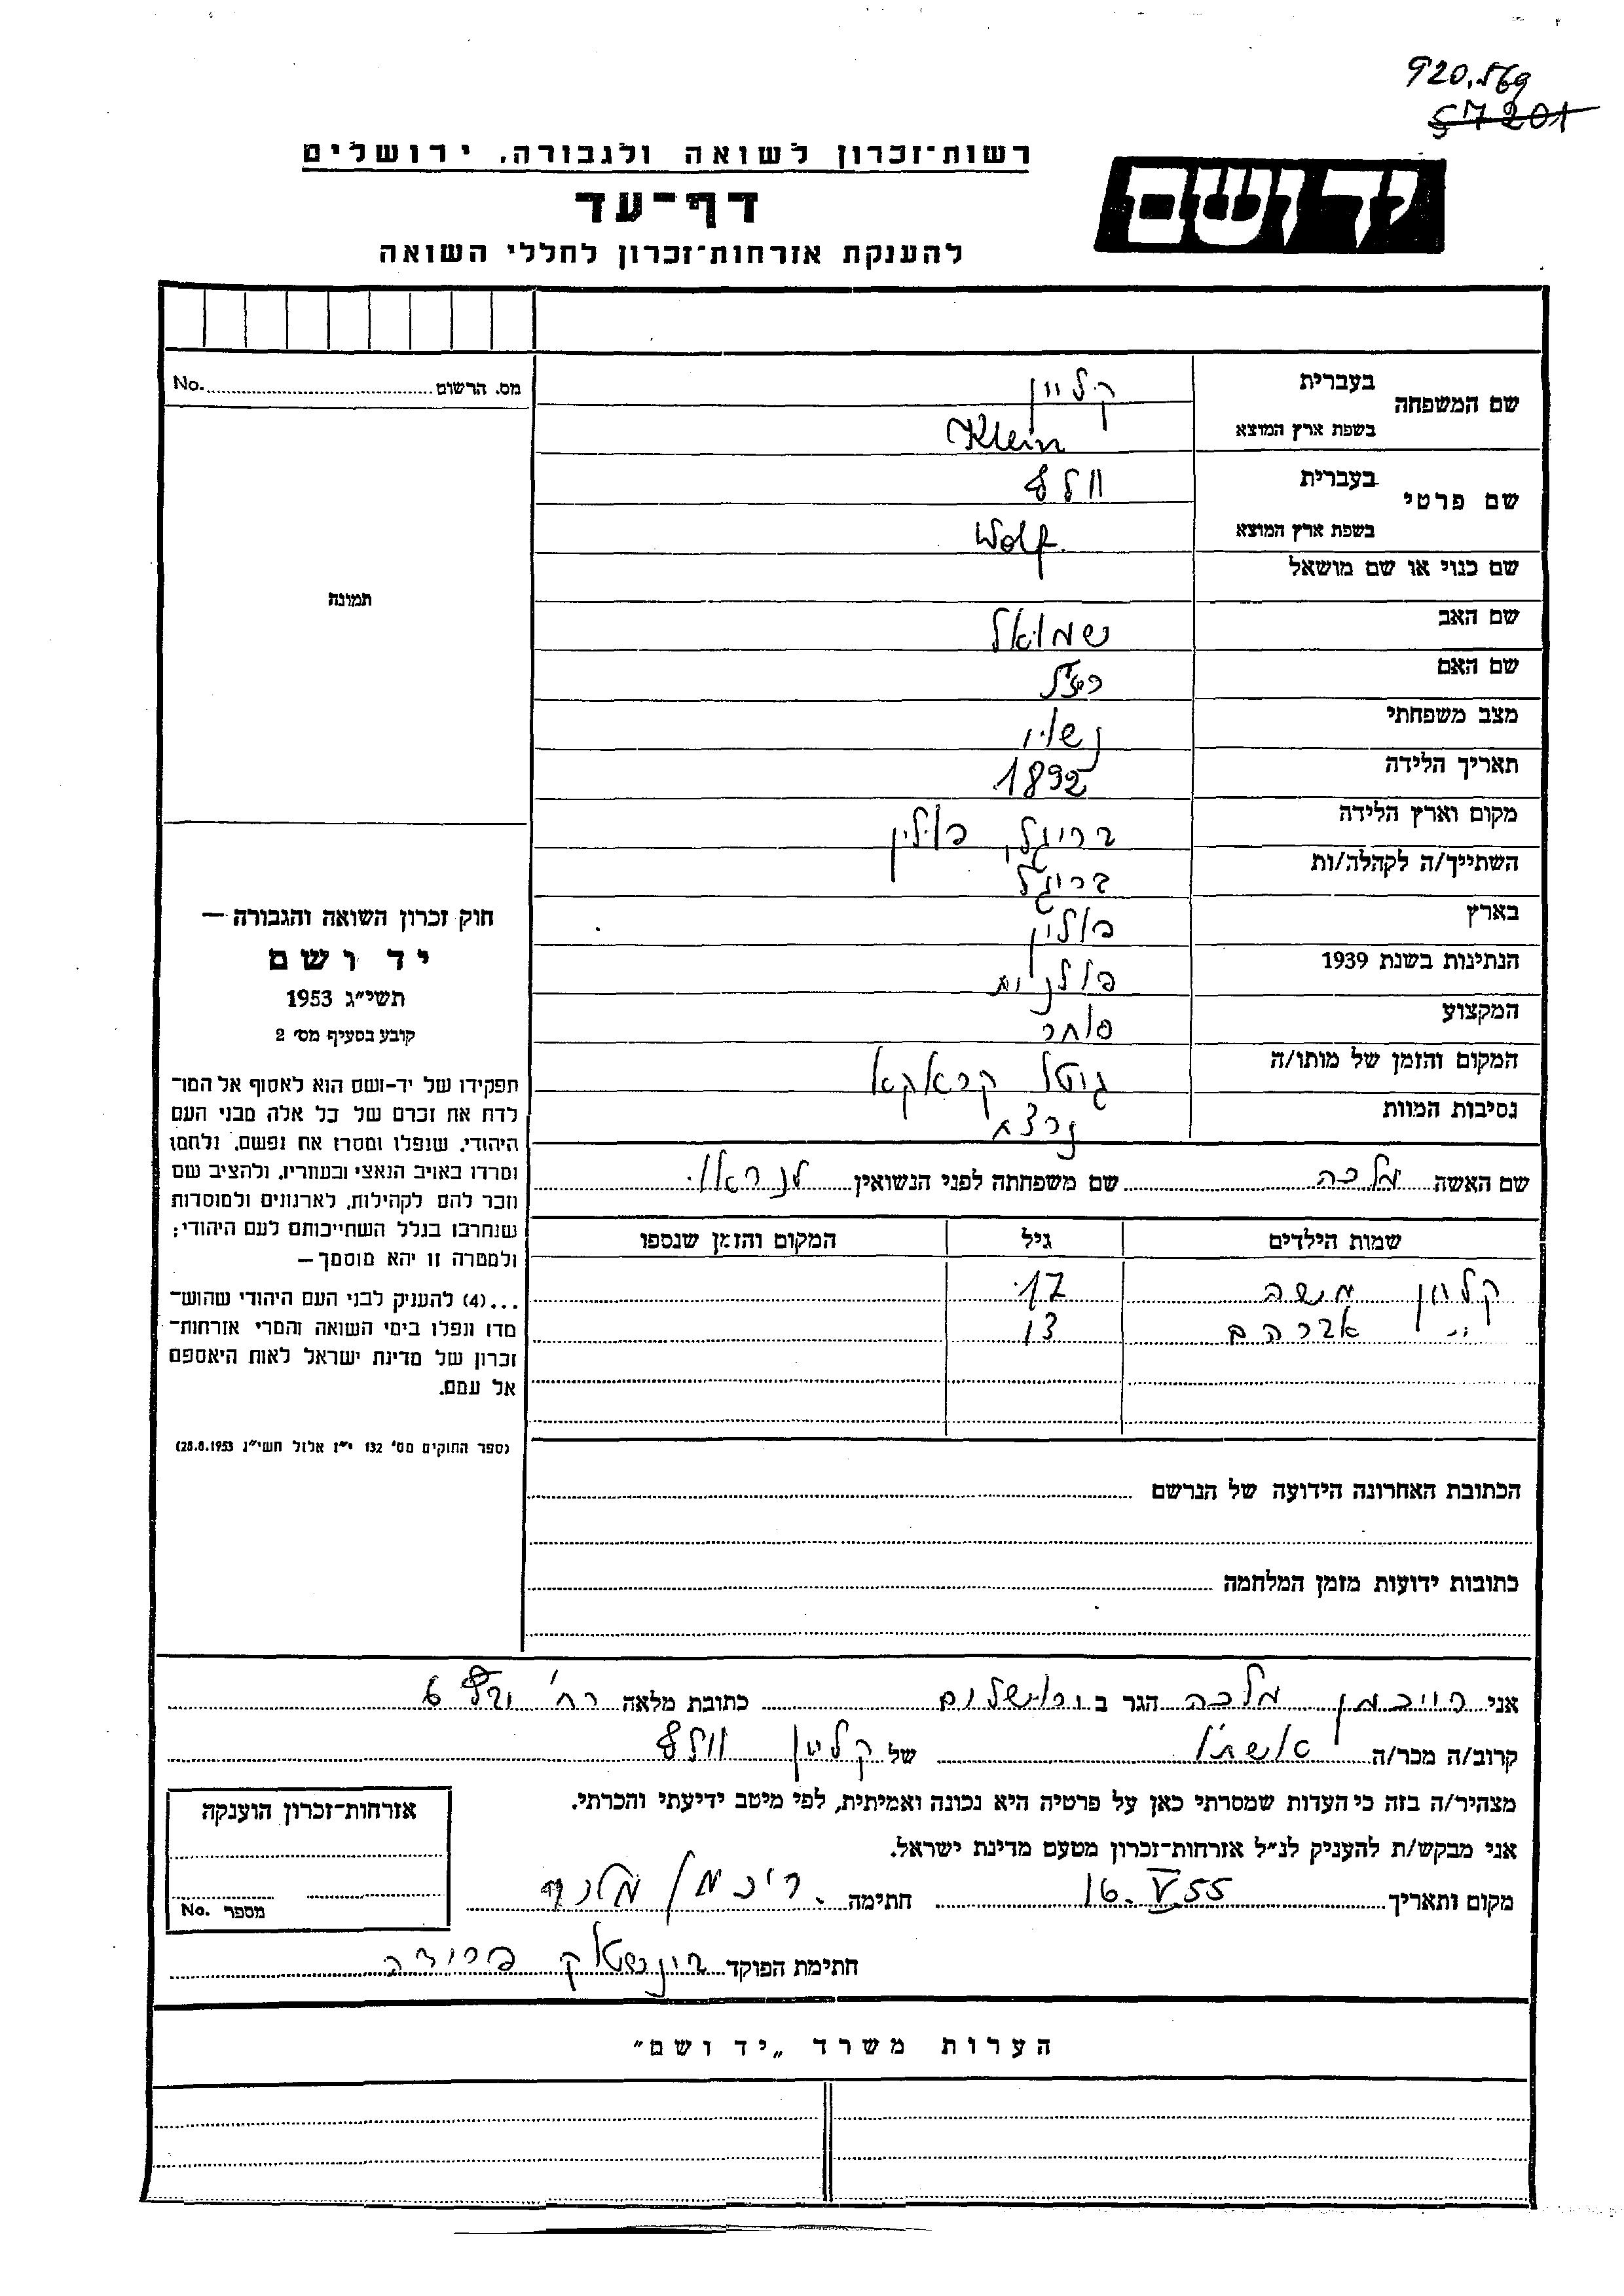 920.569
57201
יד ושם
רשות־זכרון לשואה ולגבורה, ירושלים
דף־עד
להענקת אזרחות־זכרון לחללי השואה
מס. הרשום No.
תמונה
שם המשפחה בעברית קליין
בשפת ארץ המוצא Klein
שם פרטי בעברית וולף
בשפת ארץ המוצא Wolf
שם כנוי או שם מושאל
שם האב שמואל
שם האם
מצב משפחתי נשוי
תאריך הלידה 1892
מקום וארץ הלידה בריגל, פולין
השתייך/ה לקהלה/ות בריגל
בארץ פולין
הנתינות בשנת 1939 פולנית
המקצוע סוחר
המקום והזמן של מותו/ה גיטו קראקא
נסיבות המוות נרצח
שם האשה מלכה שם משפחתה לפני הנשואין לנדאו
שמות הילדים גיל המקום והזמן שנספו
קליין משה 17
" אברהם 13
הכתובת האחרונה הידועה של הנרשם
כתובות ידועות מזמן המלחמה
חוק זכרון השואה והגבורה —
יד ושם
תשי״ג 1953
קובע בסעיף מס׳ 2
תפקידו של יד-ושם הוא לאסוף אל המו־
לדת את זכרם של כל אלה מבני העם
היהודי, שנפלו ומסרו את נפשם, נלחמו
ומרדו באויב הנאצי ובעוזריו, ולהציב שם
וזכר להם לקהילות, לארגונים ולמוסדות
שנחרבו בגלל השתייכותם לעם היהודי;
ולמטרה זו יהא מוסמך —
...(4) להעניק לבני העם היהודי שהוש־
מדו ונפלו בימי השואה והמרי אזרחות־
זכרון של מדינת ישראל לאות היאספם
אל עמם.
(ספר החוקים מס׳ 132 י״ז אלול תשי״ג 28.8.1953)
אני רייכמן מלכה הגר ב ירושלים כתובת מלאה רח׳ 6
קרוב/ה מכר/ה אשתו של קליין וולף
מצהיר/ה בזה כי העדות שמסרתי כאן על פרטיה היא נכונה ואמיתית, לפי מיטב ידיעתי והכרתי.
אני מבקש/ת להעניק לנ״ל אזרחות־זכרון מטעם מדינת ישראל.
מקום ותאריך 16. V 55 חתימה רייכמן מלכה
חתימת הפוקד
אזרחות־זכרון הוענקה
מספר No.
הערות משרד „יד ושם״